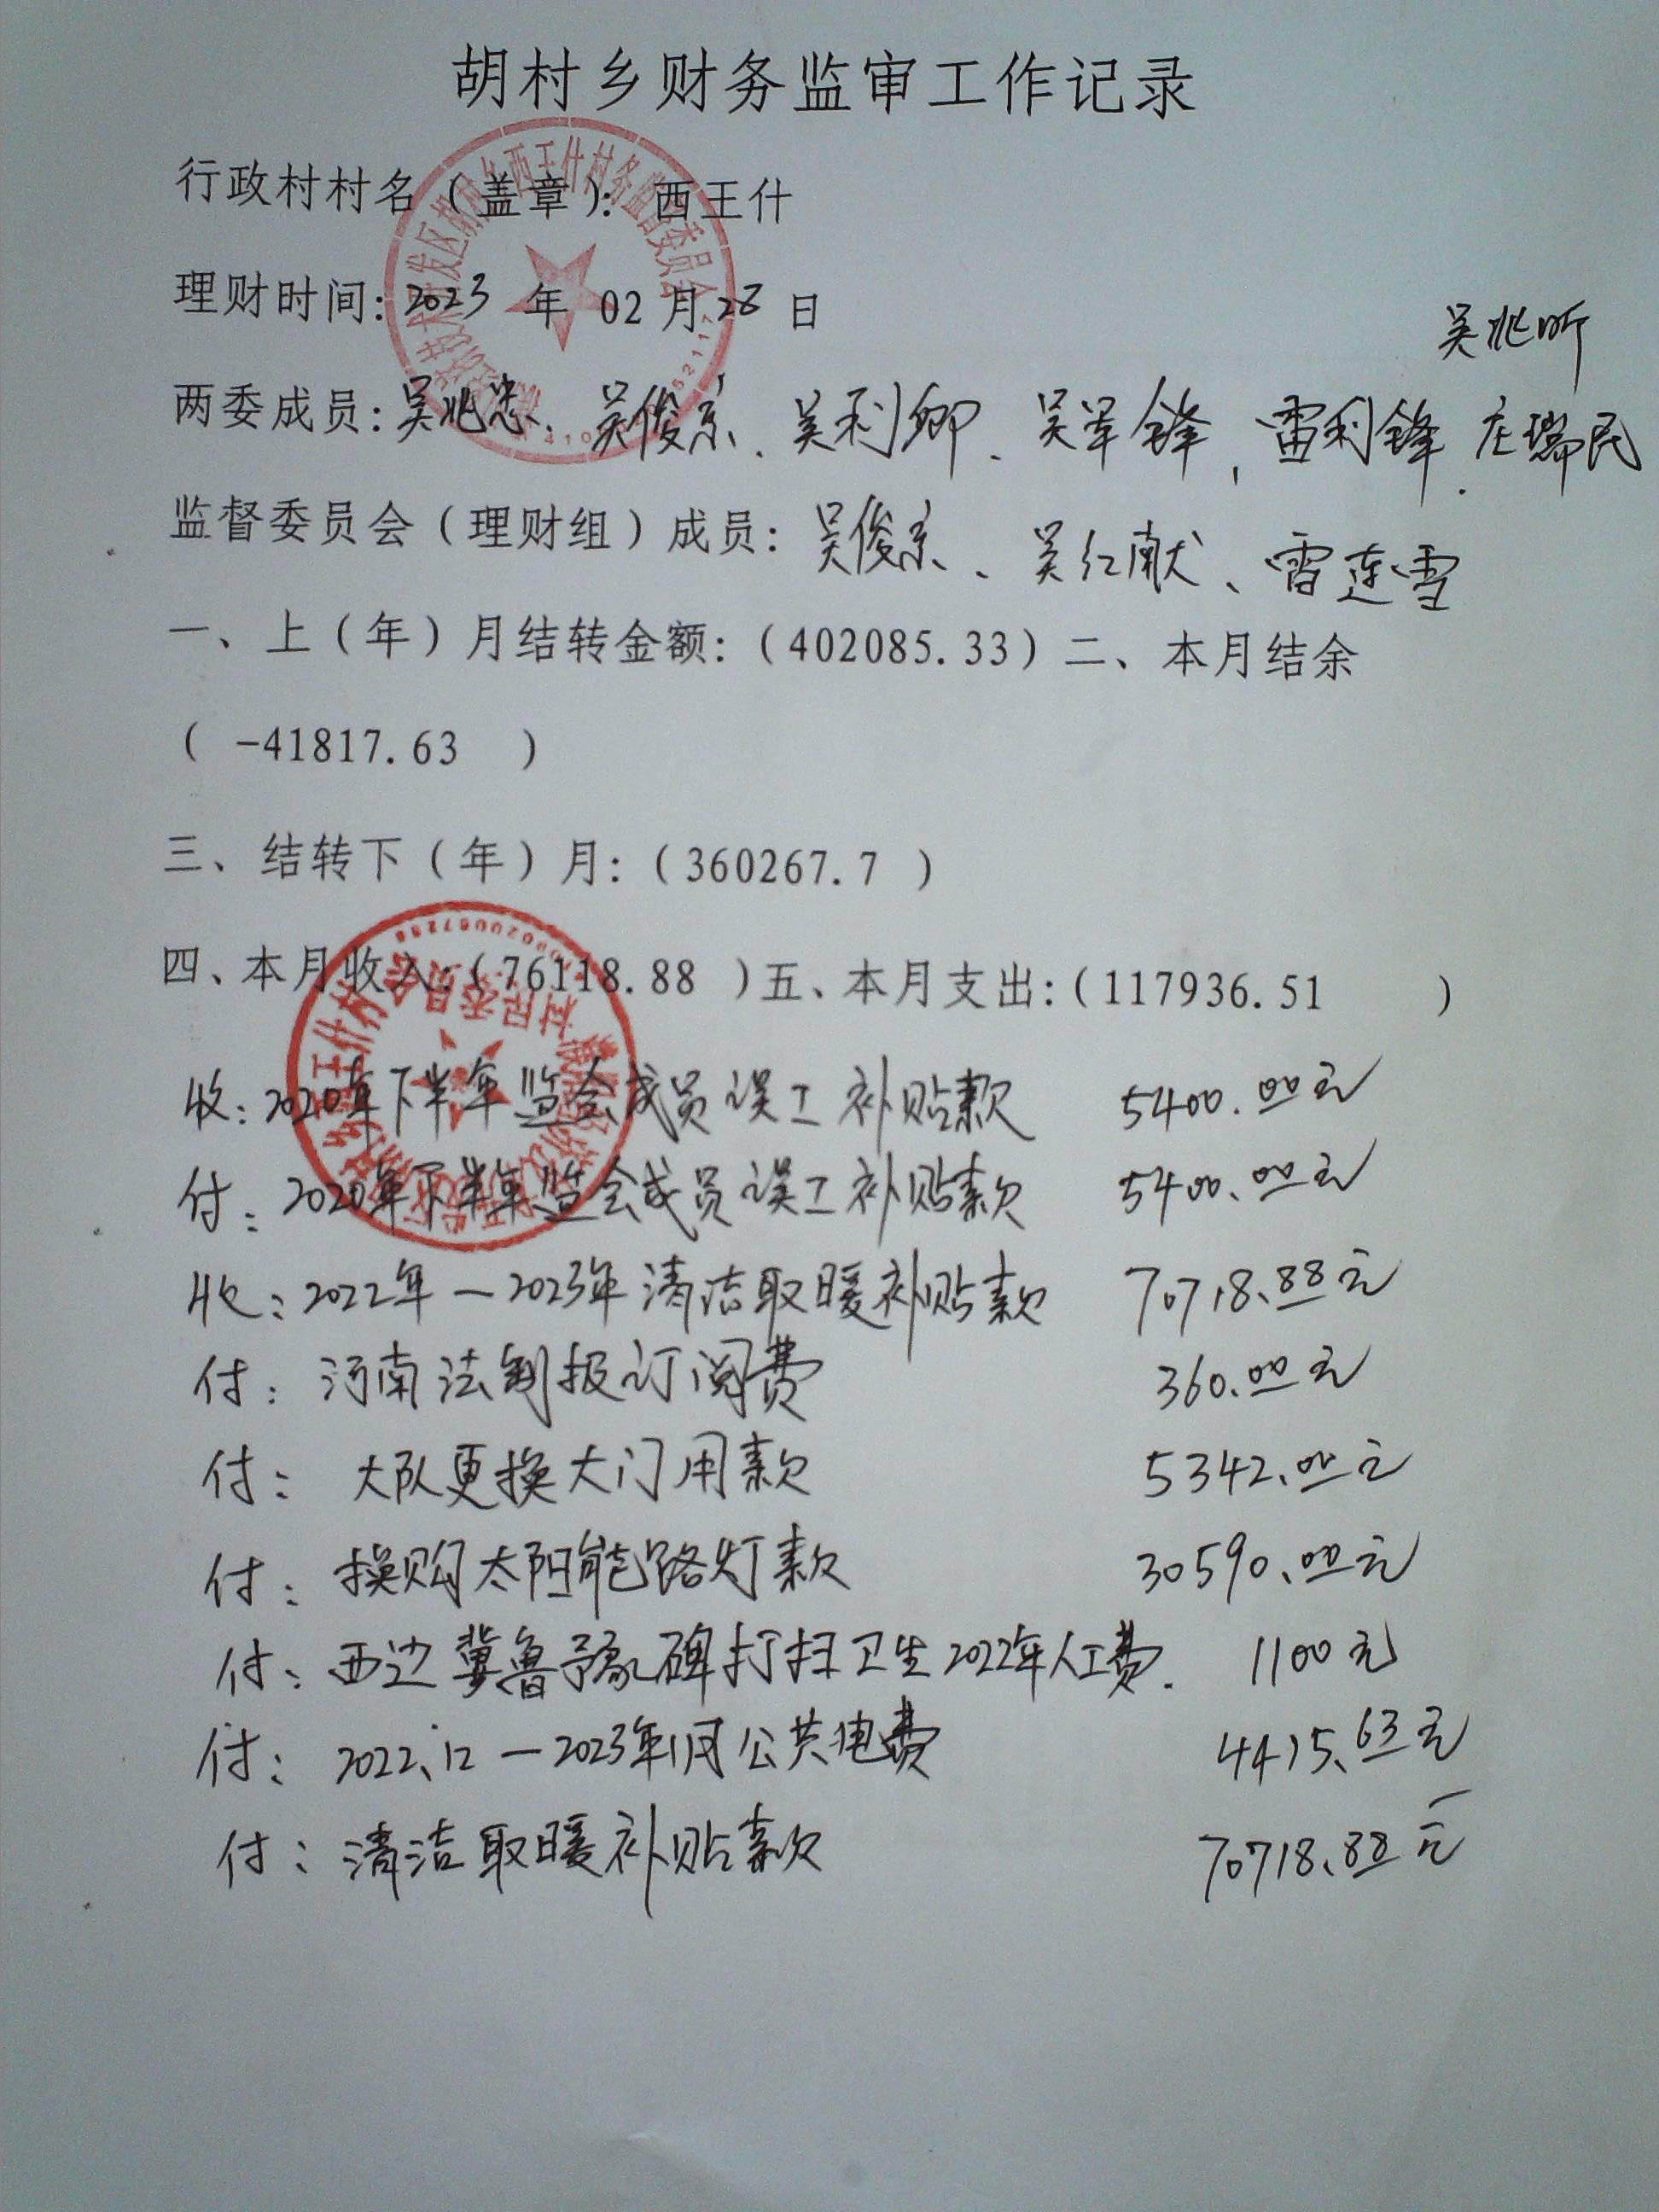 胡村乡财务监审工作记录
行政村村名（盖章）：西王什
理财时间：2023 年 02 月 28 日
吴兆昕
两委成员：吴兆忠、吴俊系、吴利卿、吴军锋，雷利锋，庄瑞民
监督委员会（理财组）成员：吴俊系、吴红献、雷连雪
一、上（年）月结转金额：（402085.33）二、本月结余
（ -41817.63 ）
三、结转下（年）月：（360267.7 ）
四、本月收入：（76118.88 ）五、本月支出：（117936.51 ）
收：2020年下半年监会成员误工补贴款 5400.00元
付：2020年下半年监会成员误工补贴款 5400.00元
收：2022年—2023年清洁取暖补贴款 70718.88元
付：河南法制报订阅费 360.00元
付：大队更换大门用款 5342.00元
付：换购太阳能路灯款 30590.00元
付：西边冀鲁豫碑打扫卫生2022年人工费. 1100元
付：2022.12—2023年1月公共电费 4415.63元
付：清洁取暖补贴款 70718.88元